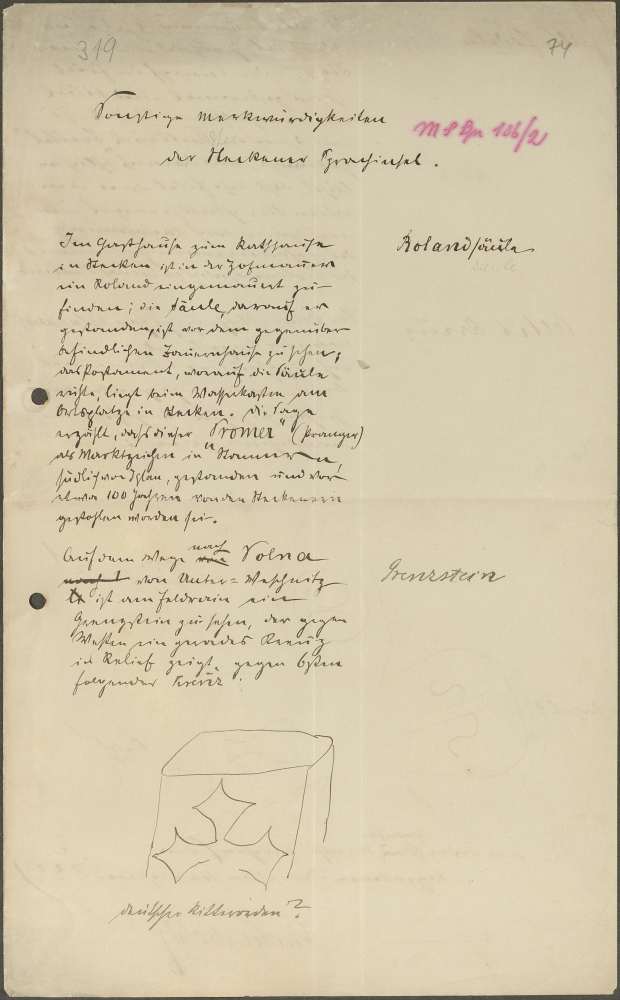 319
74
Sonstige Merkwürdigkeiten
M 8 Gr 136/2
der Steckener Sprachinsel.
Im Gasthause zum Rathhause
Rolandsäule
in Stecken ist in der Hofmauer
ein Roland eingemauert zu
finden; die Säule, darauf er
gestanden, ist vor dem gegenüber
befindlichen Bauernhause zu sehen;
das Postament, worauf die Säule
ruhte, liegt beim Wasserkasten am
Ortsplatze in Stecken. Die Sage
erzählt, dass dieser "Promer" (Pranger)
als Marktzeichen in Stannern,
südlich von Iglau, gestanden und vor
etwa 100 Jahren von den Steckenern
gestohlen worden sei.
Auf dem Wege nach Polna
von Unter-Weschnitz
Grenzstein
ist am Feldrain ein
Grenzstein zu sehen, der gegen
Westen ein gerades Kreuz
in Relief zeigt, gegen Osten
folgendes Kreuz:
deutscher Ritterorden?